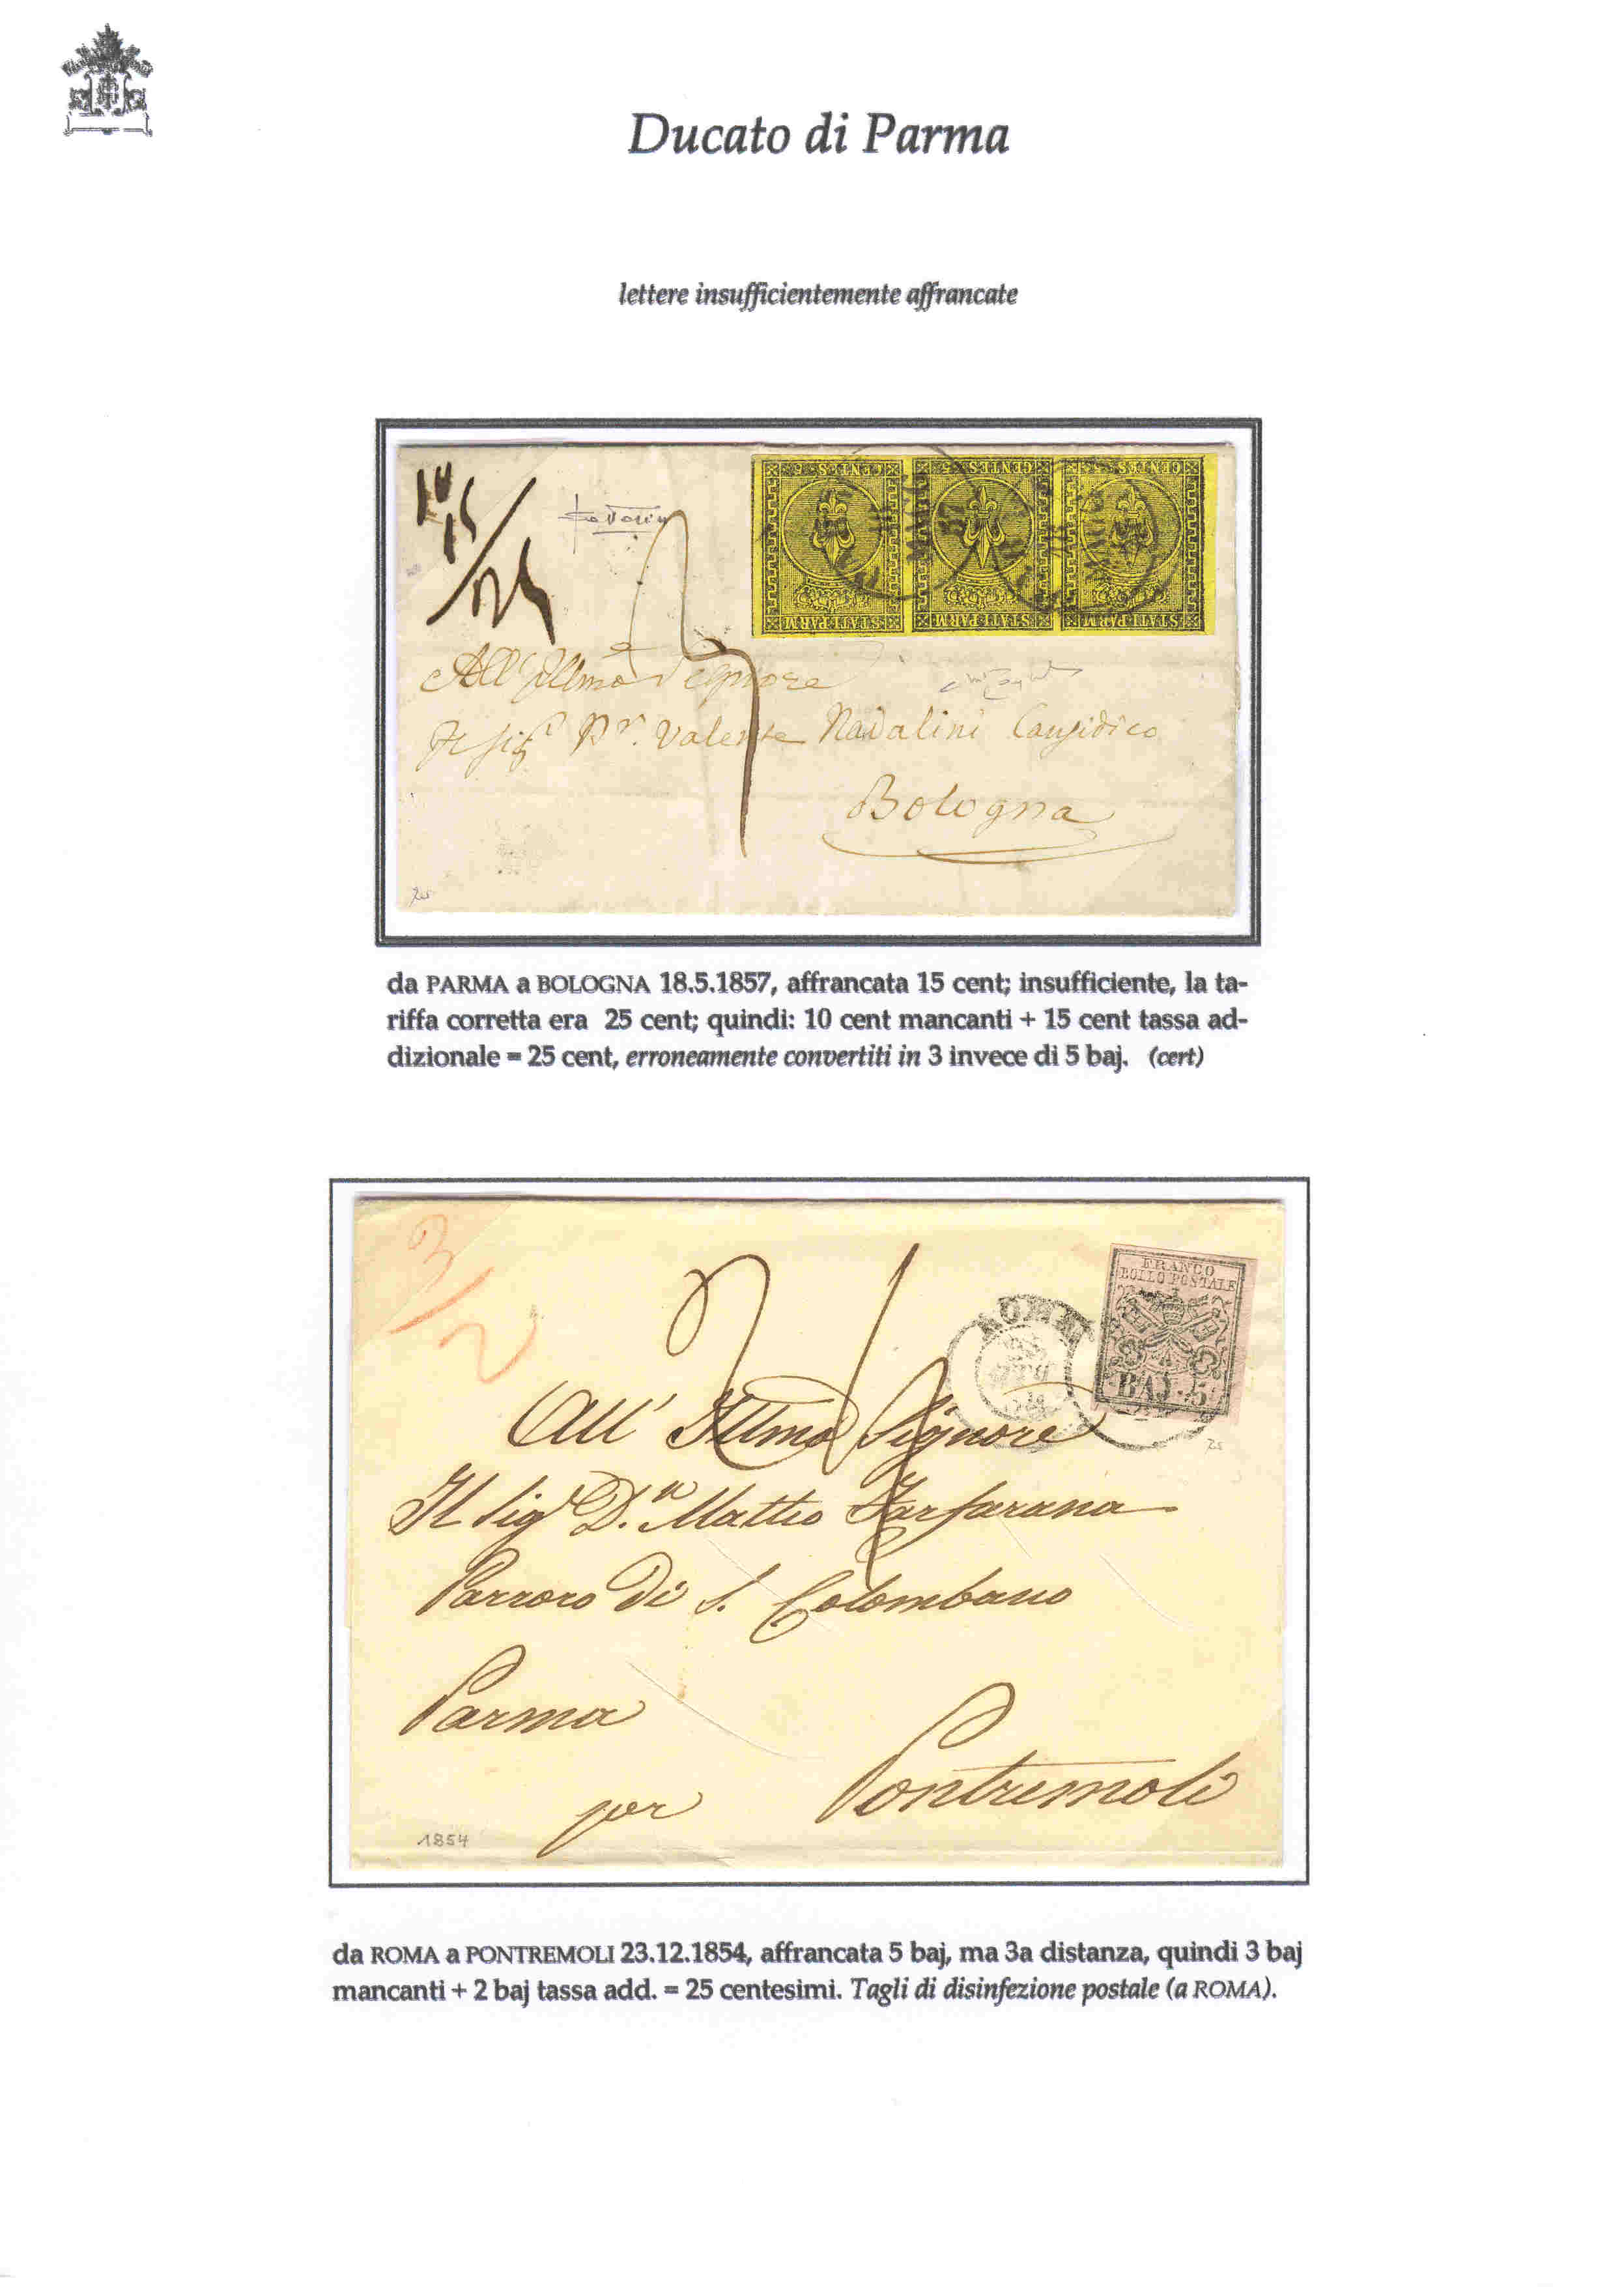 Ducato di Parma
lettere insufficientemente affrancate
10
15
25
3
CENTES 5 CENTES 5 CENTES 5
STATI PARM STATI PARM STATI PARM
All' Illmo Signore
Il Sigr Dr. Valente Nadalini Causidico
Bologna
da PARMA a BOLOGNA 18.5.1857, affrancata 15 cent; insufficiente, la ta-
riffa corretta era 25 cent; quindi: 10 cent mancanti + 15 cent tassa ad-
dizionale = 25 cent, erroneamente convertiti in 3 invece di 5 baj. (cert)
3/2
FRANCO
BOLLO POSTALE
BAJ. 5
ROMA
All' Illmo Signore
Il Sigr D.n Matteo Farfarana
Parroco di S. Colombano
Parma
per Pontremoli
1854
da ROMA a PONTREMOLI 23.12.1854, affrancata 5 baj, ma 3a distanza, quindi 3 baj
mancanti + 2 baj tassa add. = 25 centesimi. Tagli di disinfezione postale (a ROMA).